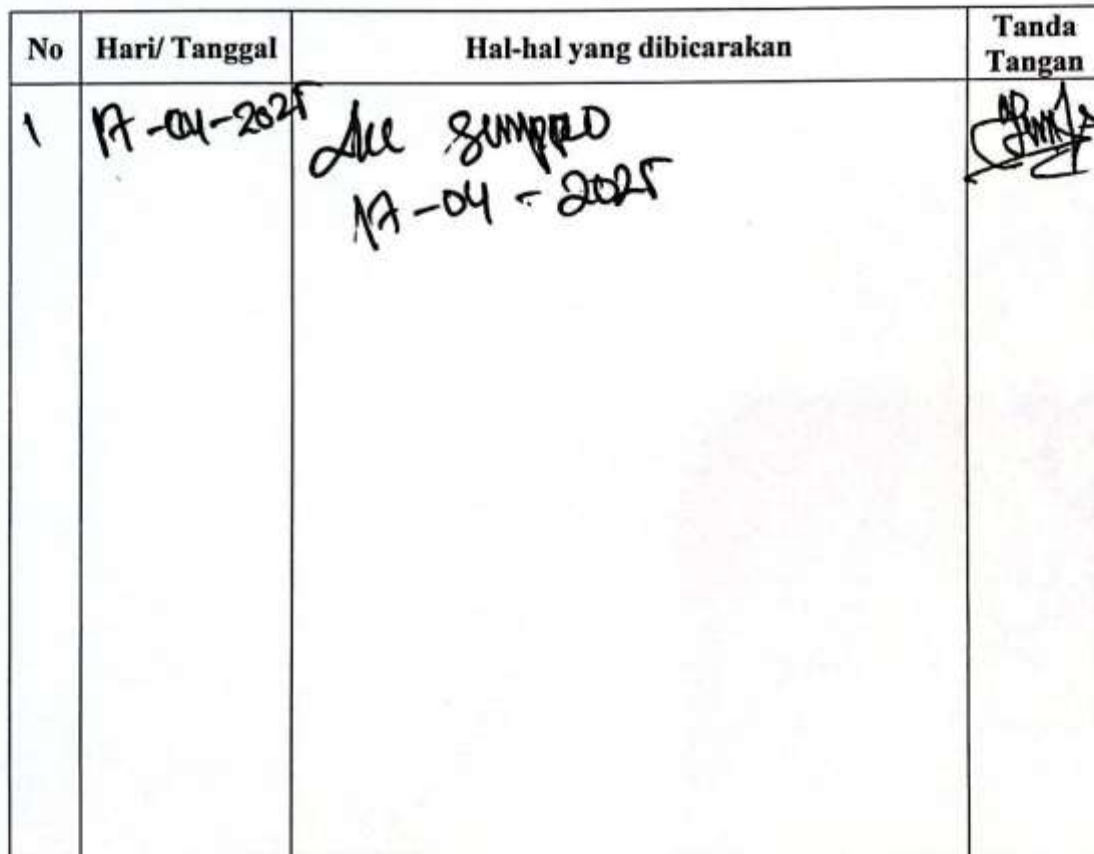 No Hari/ Tanggal Hal-hal yang dibicarakan Tanda Tangan
1 17-04-2025 Acc sempro
17-04-2025